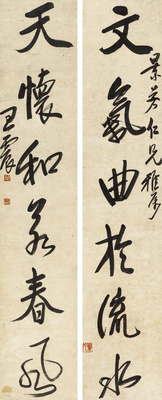 文氣曲於流水
景英仁兄雅屬
天懷和若春風
王震